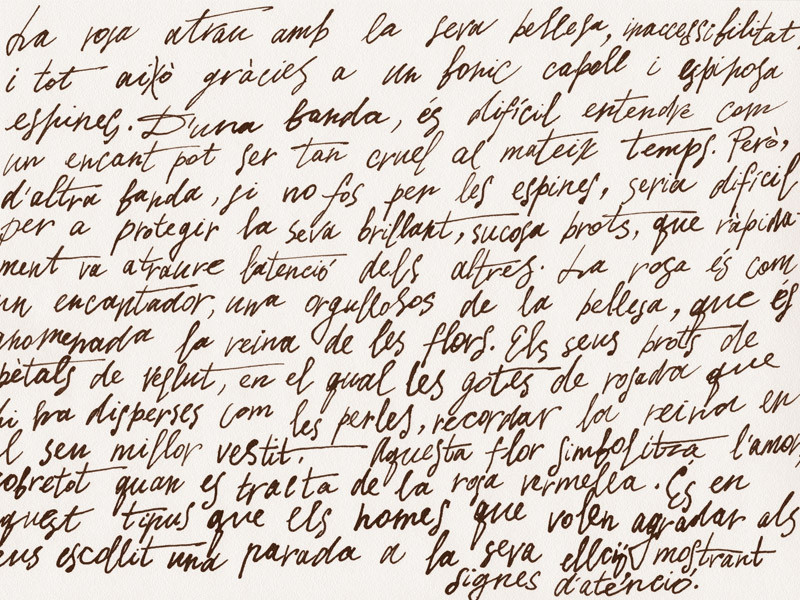 La rosa atrau amb la seva bellesa, inaccessibilitat,
i tot això gràcies a un bonic cabell i espinosa
espines. D'una banda, és difícil entendre com
un encant pot ser tan cruel al mateix temps. Però,
d'altra banda, si no fos per les espines, seria difícil
per a protegir la seva brillant, sucosa brots, que ràpida
ment va atraure latenció dels altres. La rosa és com
un encantador, una orgullosos de la bellesa, que és
anomenada la reina de les flors. Els seus brots de
pètals de vellut, en el qual les gotes de rosada que
hi ha disperses com les perles, recordar la reina en
el seu millor vestit. Aquesta flor simbolitza l'amor,
sobretot quan es tracta de la rosa vermella. És en
aquest tipus que els homes que volen agradar als
seus escollit una parada a la seva mostrant
signes d'atenció.